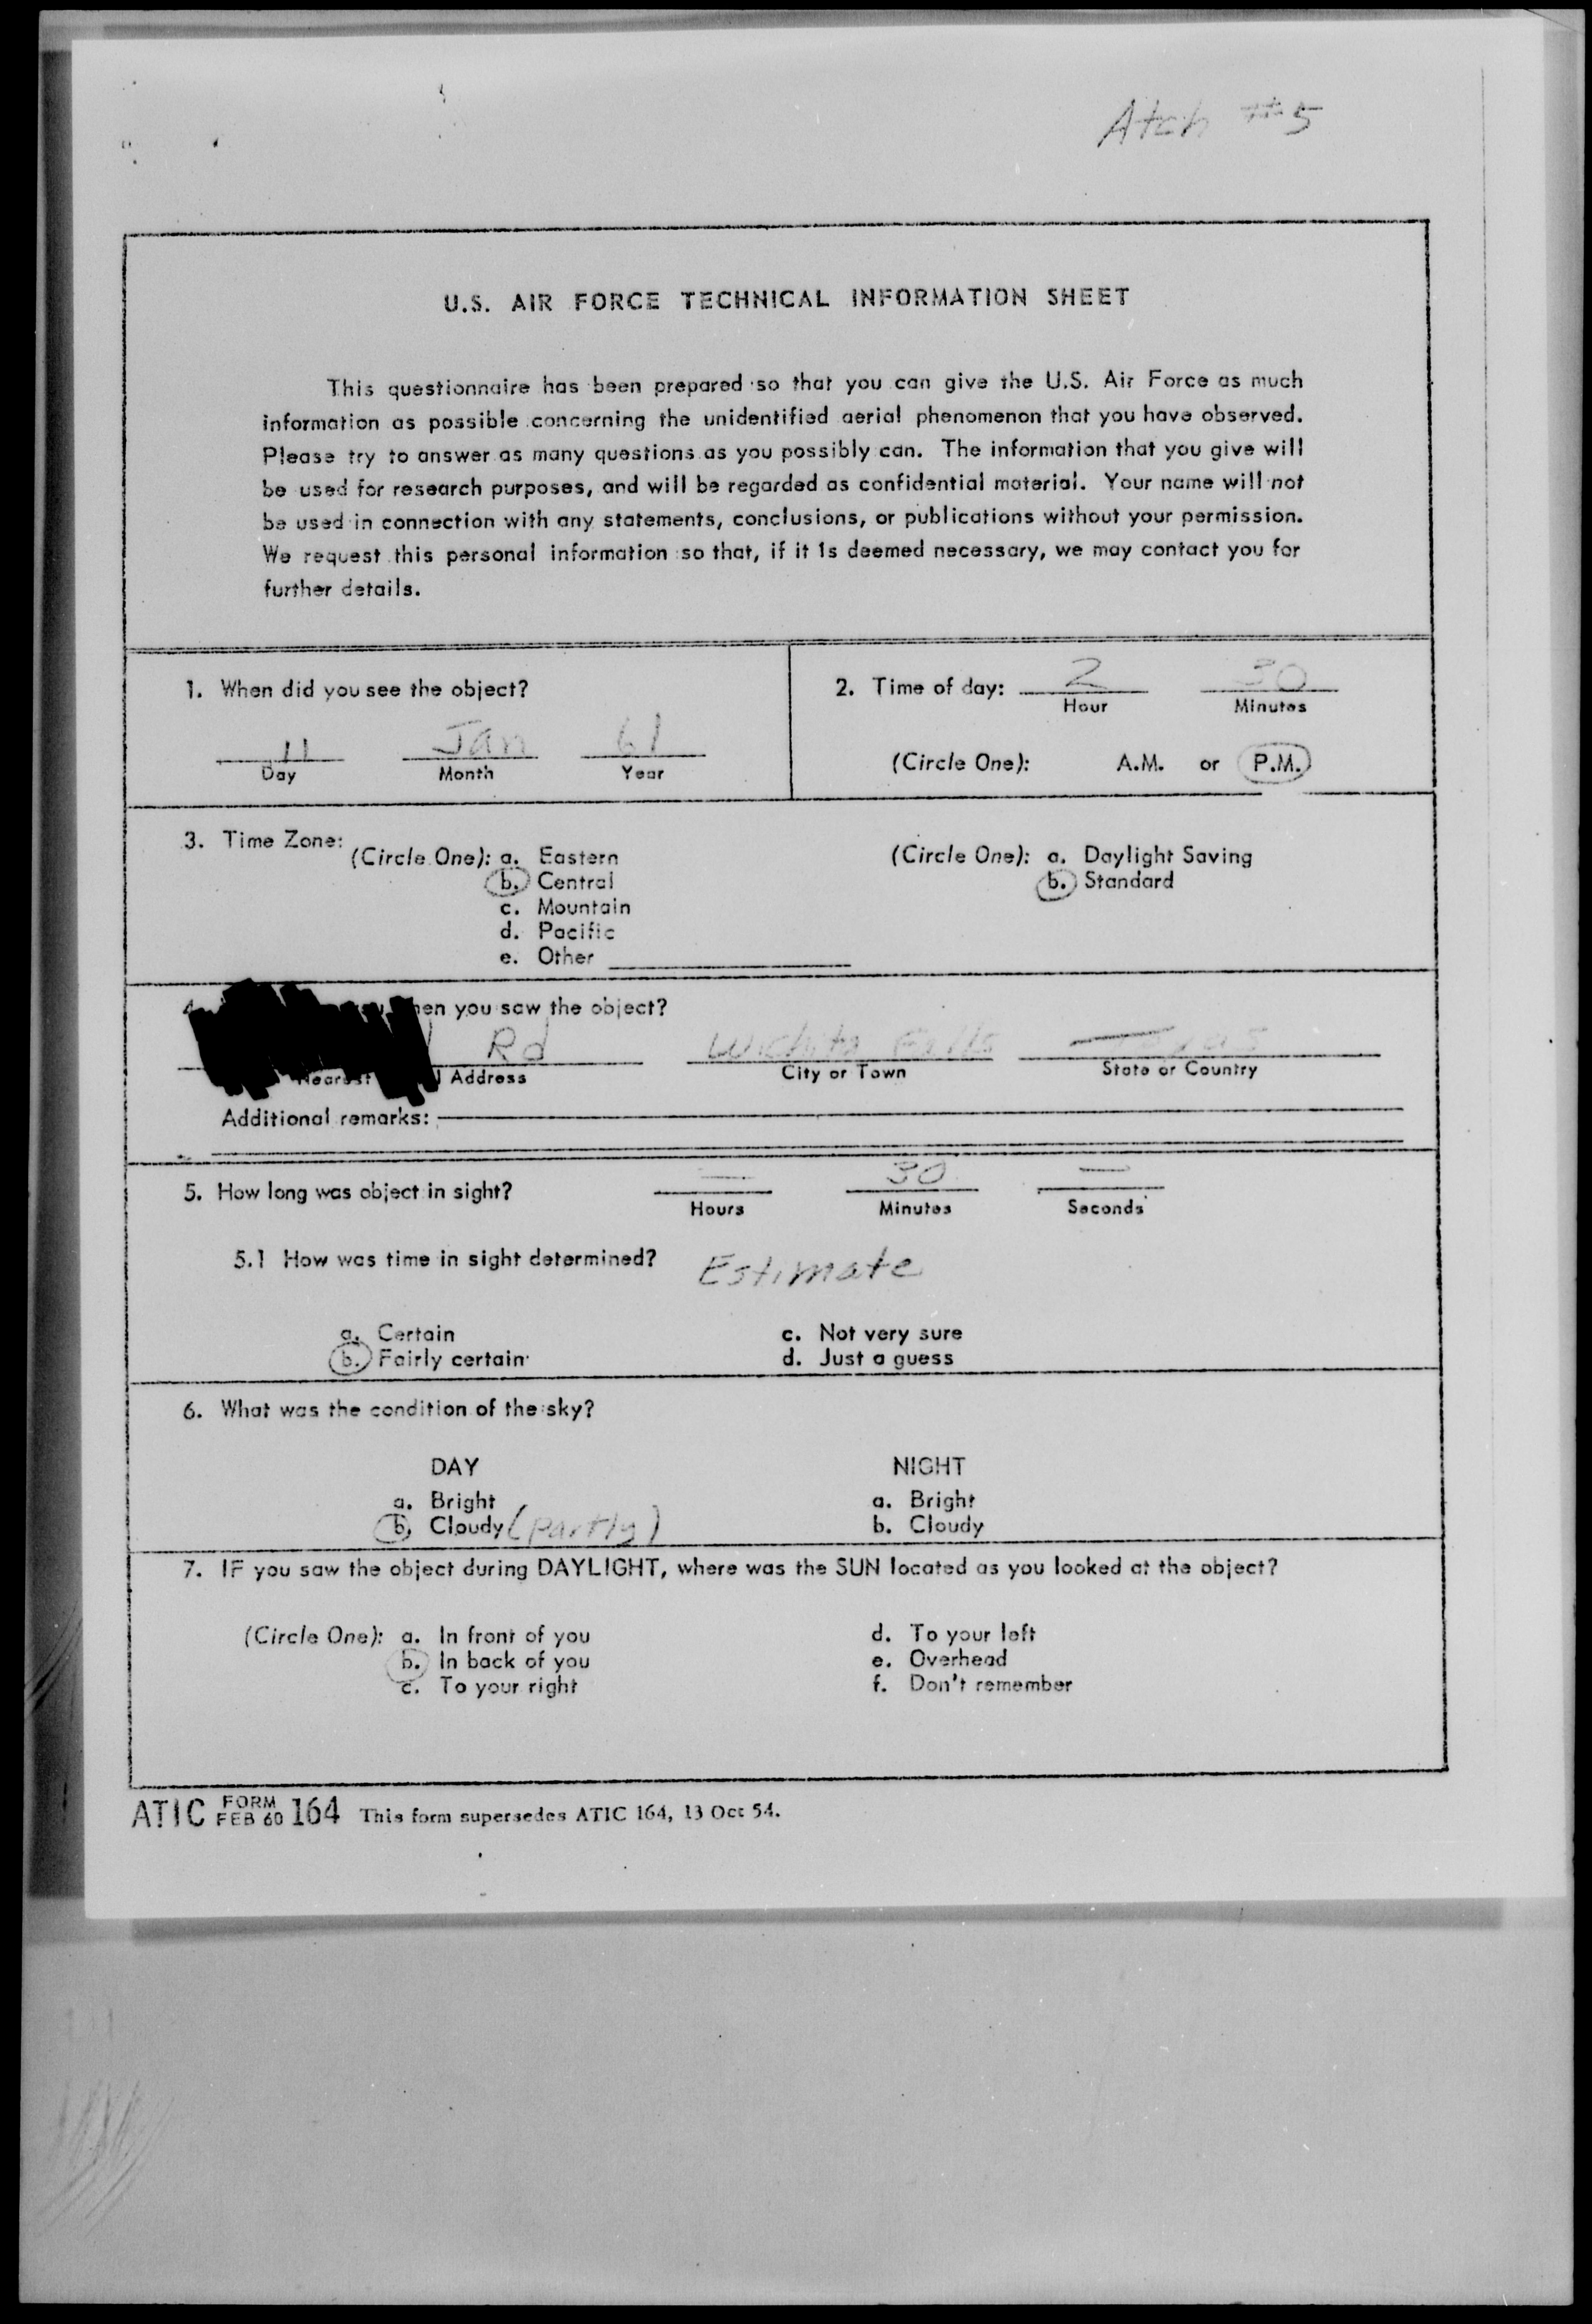 Atch #5
U.S. AIR FORCE TECHNICAL INFORMATION SHEET
This questionnaire has been prepared so that you can give the U.S. Air Force as much
information as possible concerning the unidentified aerial phenomenon that you have observed.
Please try to answer as many questions as you possibly can. The information that you give will
be used for research purposes, and will be regarded as confidential material. Your name will not
be used in connection with any statements, conclusions, or publications without your permission.
We request this personal information so that, if it is deemed necessary, we may contact you for
further details.
1. When did you see the object?
11 Jan 61
Day Month Year
2. Time of day: 2 30
Hour Minutes
(Circle One): A.M. or P.M.
3. Time Zone:
(Circle One): a. Eastern
b. Central
c. Mountain
d. Pacific
e. Other
(Circle One): a. Daylight Saving
b. Standard
4. when you saw the object?
Rd Wichita Falls Texas
Nearest Address City or Town State or Country
Additional remarks:
5. How long was object in sight? — 30 —
Hours Minutes Seconds
5.1 How was time in sight determined? Estimate
a. Certain c. Not very sure
b. Fairly certain d. Just a guess
6. What was the condition of the sky?
DAY NIGHT
a. Bright a. Bright
b. Cloudy (partly) b. Cloudy
7. IF you saw the object during DAYLIGHT, where was the SUN located as you looked at the object?
(Circle One): a. In front of you d. To your left
b. In back of you e. Overhead
c. To your right f. Don't remember
ATIC FORM FEB 60 164 This form supersedes ATIC 164, 13 Oct 54.